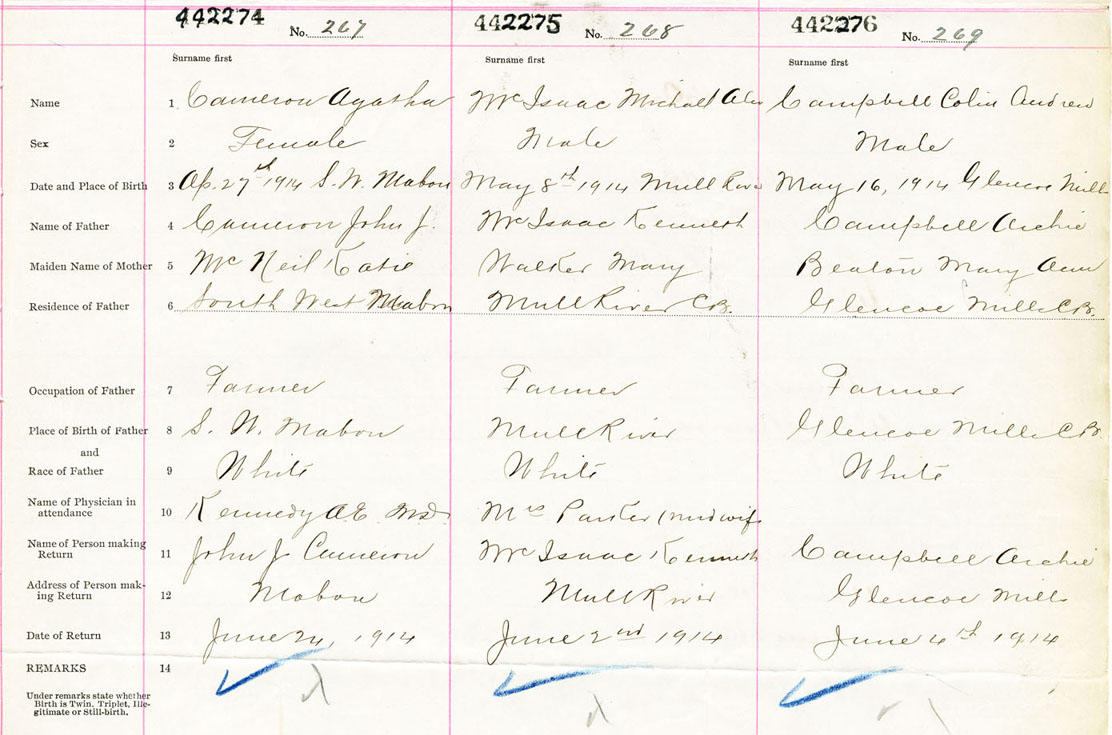 442274 No. 267 442275 No. 268 442276 No. 269
Surname first Surname first Surname first
Name 1 Cameron Agatha McIsaac Michael Campbell Colin Andrew
Sex 2 Female Male Male
Date and Place of Birth 3 Ap. 27th 1914 S. W. Mabou May 8th 1914 Mull River May 16, 1914 Glencoe Mills
Name of Father 4 Cameron John J. McIsaac Kenneth Campbell Archie
Maiden Name of Mother 5 McNeil Katie Walker Mary Beaton Mary Ann
Residence of Father 6 South West Mabou Mull River C.B. Glencoe Mills C.B.
Occupation of Father 7 Farmer Farmer Farmer
Place of Birth of Father 8 S. W. Mabou Mull River Glencoe Mills C.B.
and
Race of Father 9 White White White
Name of Physician in
attendance 10 Kennedy A.E. M.D. Mrs Parker (midwife
Name of Person making
Return 11 John J Cameron McIsaac Kenneth Campbell Archie
Address of Person mak-
ing Return 12 Mabou Mull River Glencoe Mills
Date of Return 13 June 1914 June 2nd 1914 June 4th 1914
REMARKS 14
Under remarks state whether
Birth is Twin, Triplet, Ille-
gitimate or Still-birth.